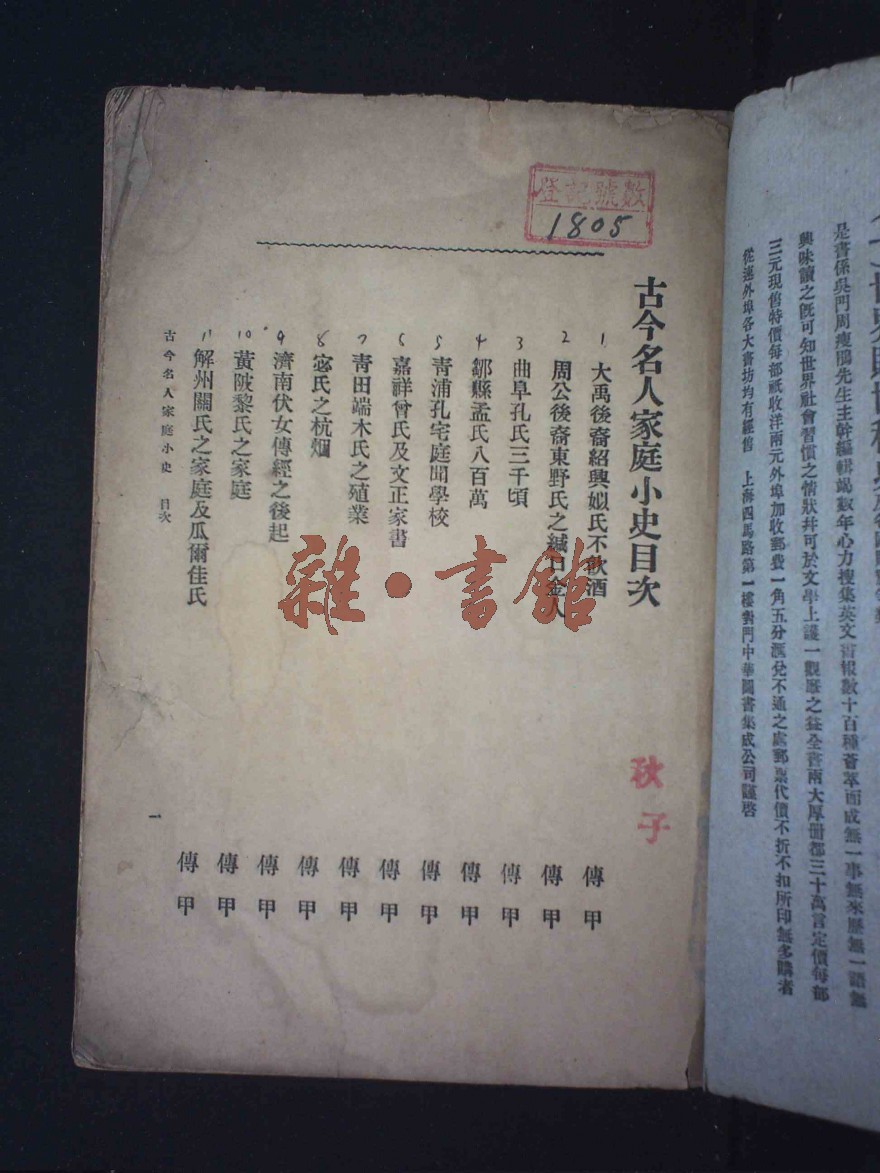 是書係吳門周瘦鵑先生主幹編輯竭數年心力搜集英文書報數十百種薈萃而成無一事無來歷無一語無
興味讀之旣可知世界社會習慣之情狀幷可於文學上議一觀摩之益全書兩大厚册都三十萬言定價每部
三元現售特價每部祇收洋兩元外埠加收郵費一角五分滙兌不通之處郵票代價不折不扣所印無多購者
從速外埠各大書坊均有經售 上海四馬路第一樓對門中華圖書集成公司謹啓
登記號數
1805
古今名人家庭小史目次
秋子
1 大禹後裔紹興姒氏不飲酒 傳甲
2 周公後裔東野氏之緘口金人 傳甲
3 曲阜孔氏三千頃 傳甲
4 鄒縣孟氏八百萬 傳甲
5 靑浦孔宅庭聞學校 傳甲
6 嘉祥曾氏及文正家書 傳甲
7 靑田端木氏之殖業 傳甲
8 宓氏之杭烟 傳甲
9 濟南伏女傳經之後起 傳甲
10 黃陂黎氏之家庭 傳甲
11 解州關氏之家庭及瓜爾佳氏 傳甲
古今名人家庭小史 目次 一
雜·書館